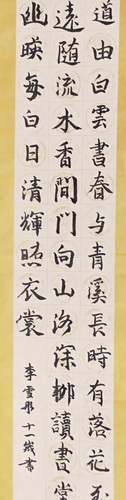 道由白雲盡春与青溪長時有落花至
遠隨流水香間門向山路深柳讀書堂
幽暎每白日清輝照衣裳
李雯彤十一歲書